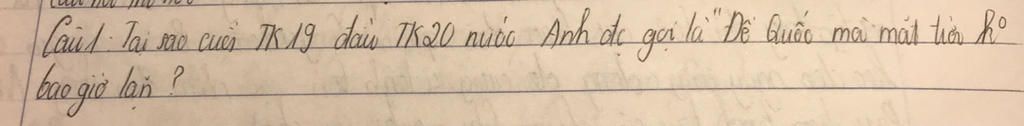 Câu 1: Tại sao cuối TK 19 đầu TK 20 nước Anh đc gọi là "Đế Quốc mà mặt trời ko
bao giờ lặn?